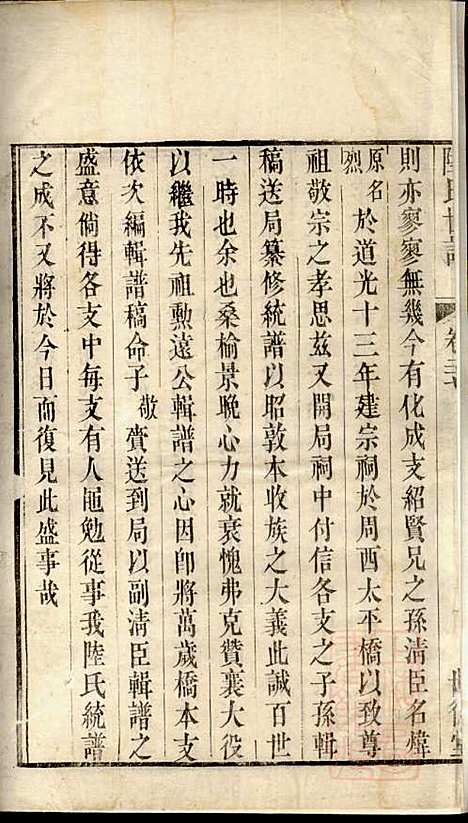 陸氏世譜
卷三
世德堂
則亦寥寥無幾今有化成支紹賢兄之孫清臣名煒
原名烈於道光十三年建宗祠於周西太平橋以致尊
祖敬宗之孝思茲又開局祠中付信各支之子孫輯
稿送局纂修統譜以昭敦本收族之大義此誠百世
一時也余也桑榆景晚心力就衰愧弗克贊襄大役
以繼我先祖勲遠公輯譜之心因卽將萬歲橋本支
依次編輯譜稿命子敬賫送到局以副清臣輯譜之
盛意倘得各支中每支有人黽勉從事我陸氏統譜
之成不又將於今日而復見此盛事哉